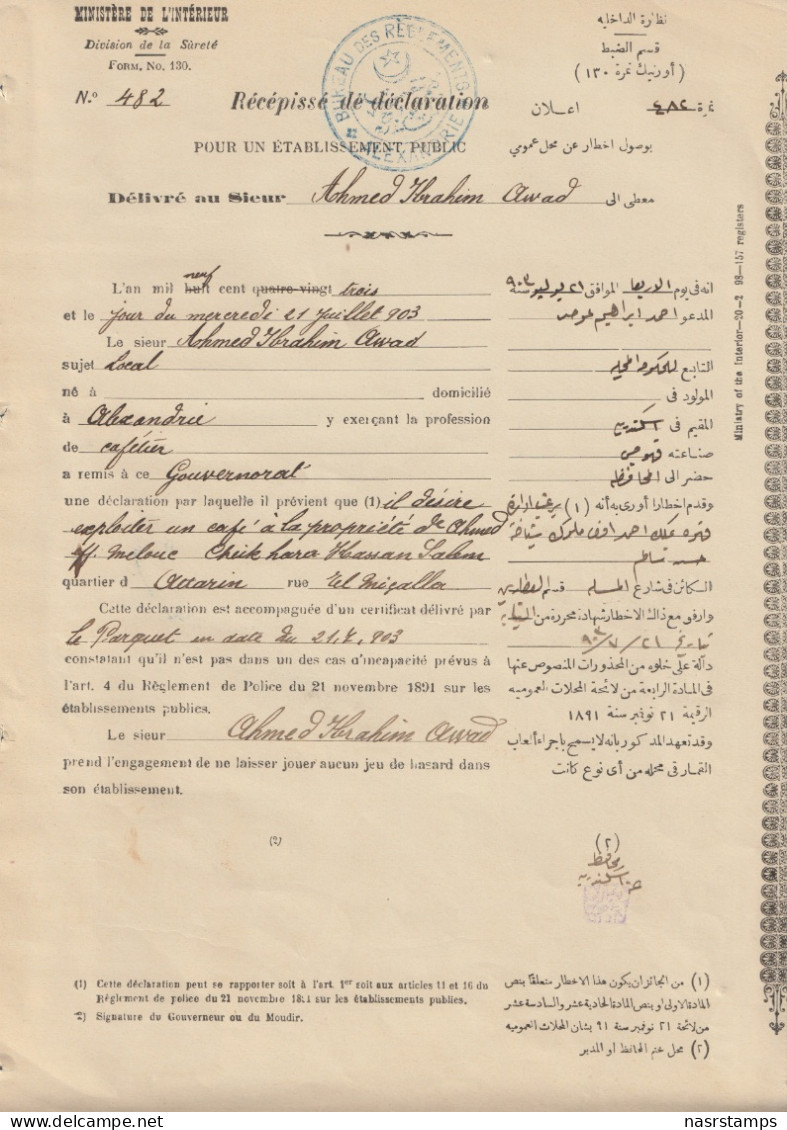 MINISTÈRE DE L'INTÉRIEUR
Division de la Sûreté
FORM. No. 130.
N.º 482
Récépissé de déclaration
POUR UN ÉTABLISSEMENT PUBLIC
Délivré au Sieur Ahmed Ibrahim Awad
BUREAU DES RÈGLEMENTS
ALEXANDRIE
نظارة الداخليه
قسم الضبط
(أورنيك نمرة ١٣٠)
نمرة ٤٨٢ اعلان
بوصول اخطار عن محل عمومي
معطى الى
L'an mil huit neuf cent quatre-vingt trois
et le jour du mercredi 21 Juillet 903
Le sieur Ahmed Ibrahim Awad
sujet Local
né à domicilié
à Alexandrie y exerçant la profession
de cafétier
a remis à ce Gouvernorat
une déclaration par laquelle il prévient que (1) il désire
exploiter un café à la propriété de Ahmed
eff. Melouc Chiik hara Hassan Salem
quartier d Attarin rue El Micalla
Cette déclaration est accompagnée d'un certificat délivré par
le Parquet en date du 21.7.903
constatant qu'il n'est pas dans un des cas d'incapacité prévus à
l'art. 4 du Règlement de Police du 21 novembre 1891 sur les
établissements publics.
Le sieur Ahmed Ibrahim Awad
prend l'engagement de ne laisser jouer aucun jeu de hasard dans
son établissement.
(2)
انه فى يوم الاربعا الموافق ٢١ يوليو سنة ٩٠٣
المدعو احمد ابراهيم عوض
التابع للحكومه المحليه
المولود فى
المقيم فى اسكندريه
صناعته قهوجى
حضر الى المحافظه
وقدم اخطارا أورى به أنه (١) يرغب ادارة
قهوه بملك احمد افندى
حسن سالم
الكائن فى شارع المسله قسم العطارين
وارفق مع ذلك الاخطار شهادة محررة من النيابة
بتاريخ ٢١/٧/٩٠٣
دالة على خلوه من المحذورات المنصوص عنها
فى المادة الرابعة من لائحة المحلات العموميه
الرقيمة ٢١ نوفمبر سنة ١٨٩١
وقد تعهد المذكور بانه لا يسمح باجراء ألعاب
القمار فى محله من أى نوع كانت
(٢)
محافظ
اسكندريه
Ministry of the Interior—20-2 98—157 registers
(1) Cette déclaration peut se rapporter soit à l'art. 1er soit aux articles 11 et 16 du
Règlement de police du 21 novembre 1891 sur les établissements publics.
(2) Signature du Gouverneur ou du Moudir.
(١) من الجائز ان يكون هذا الاخطار متعلقا بنص
المادة الاولى أو بنص المادة الحادية عشر والسادسة عشر
من لائحة ٢١ نوفمبر سنة ٩١ بشان المحلات العموميه
(٢) محل ختم المحافظ أو المدير
nasrstamps